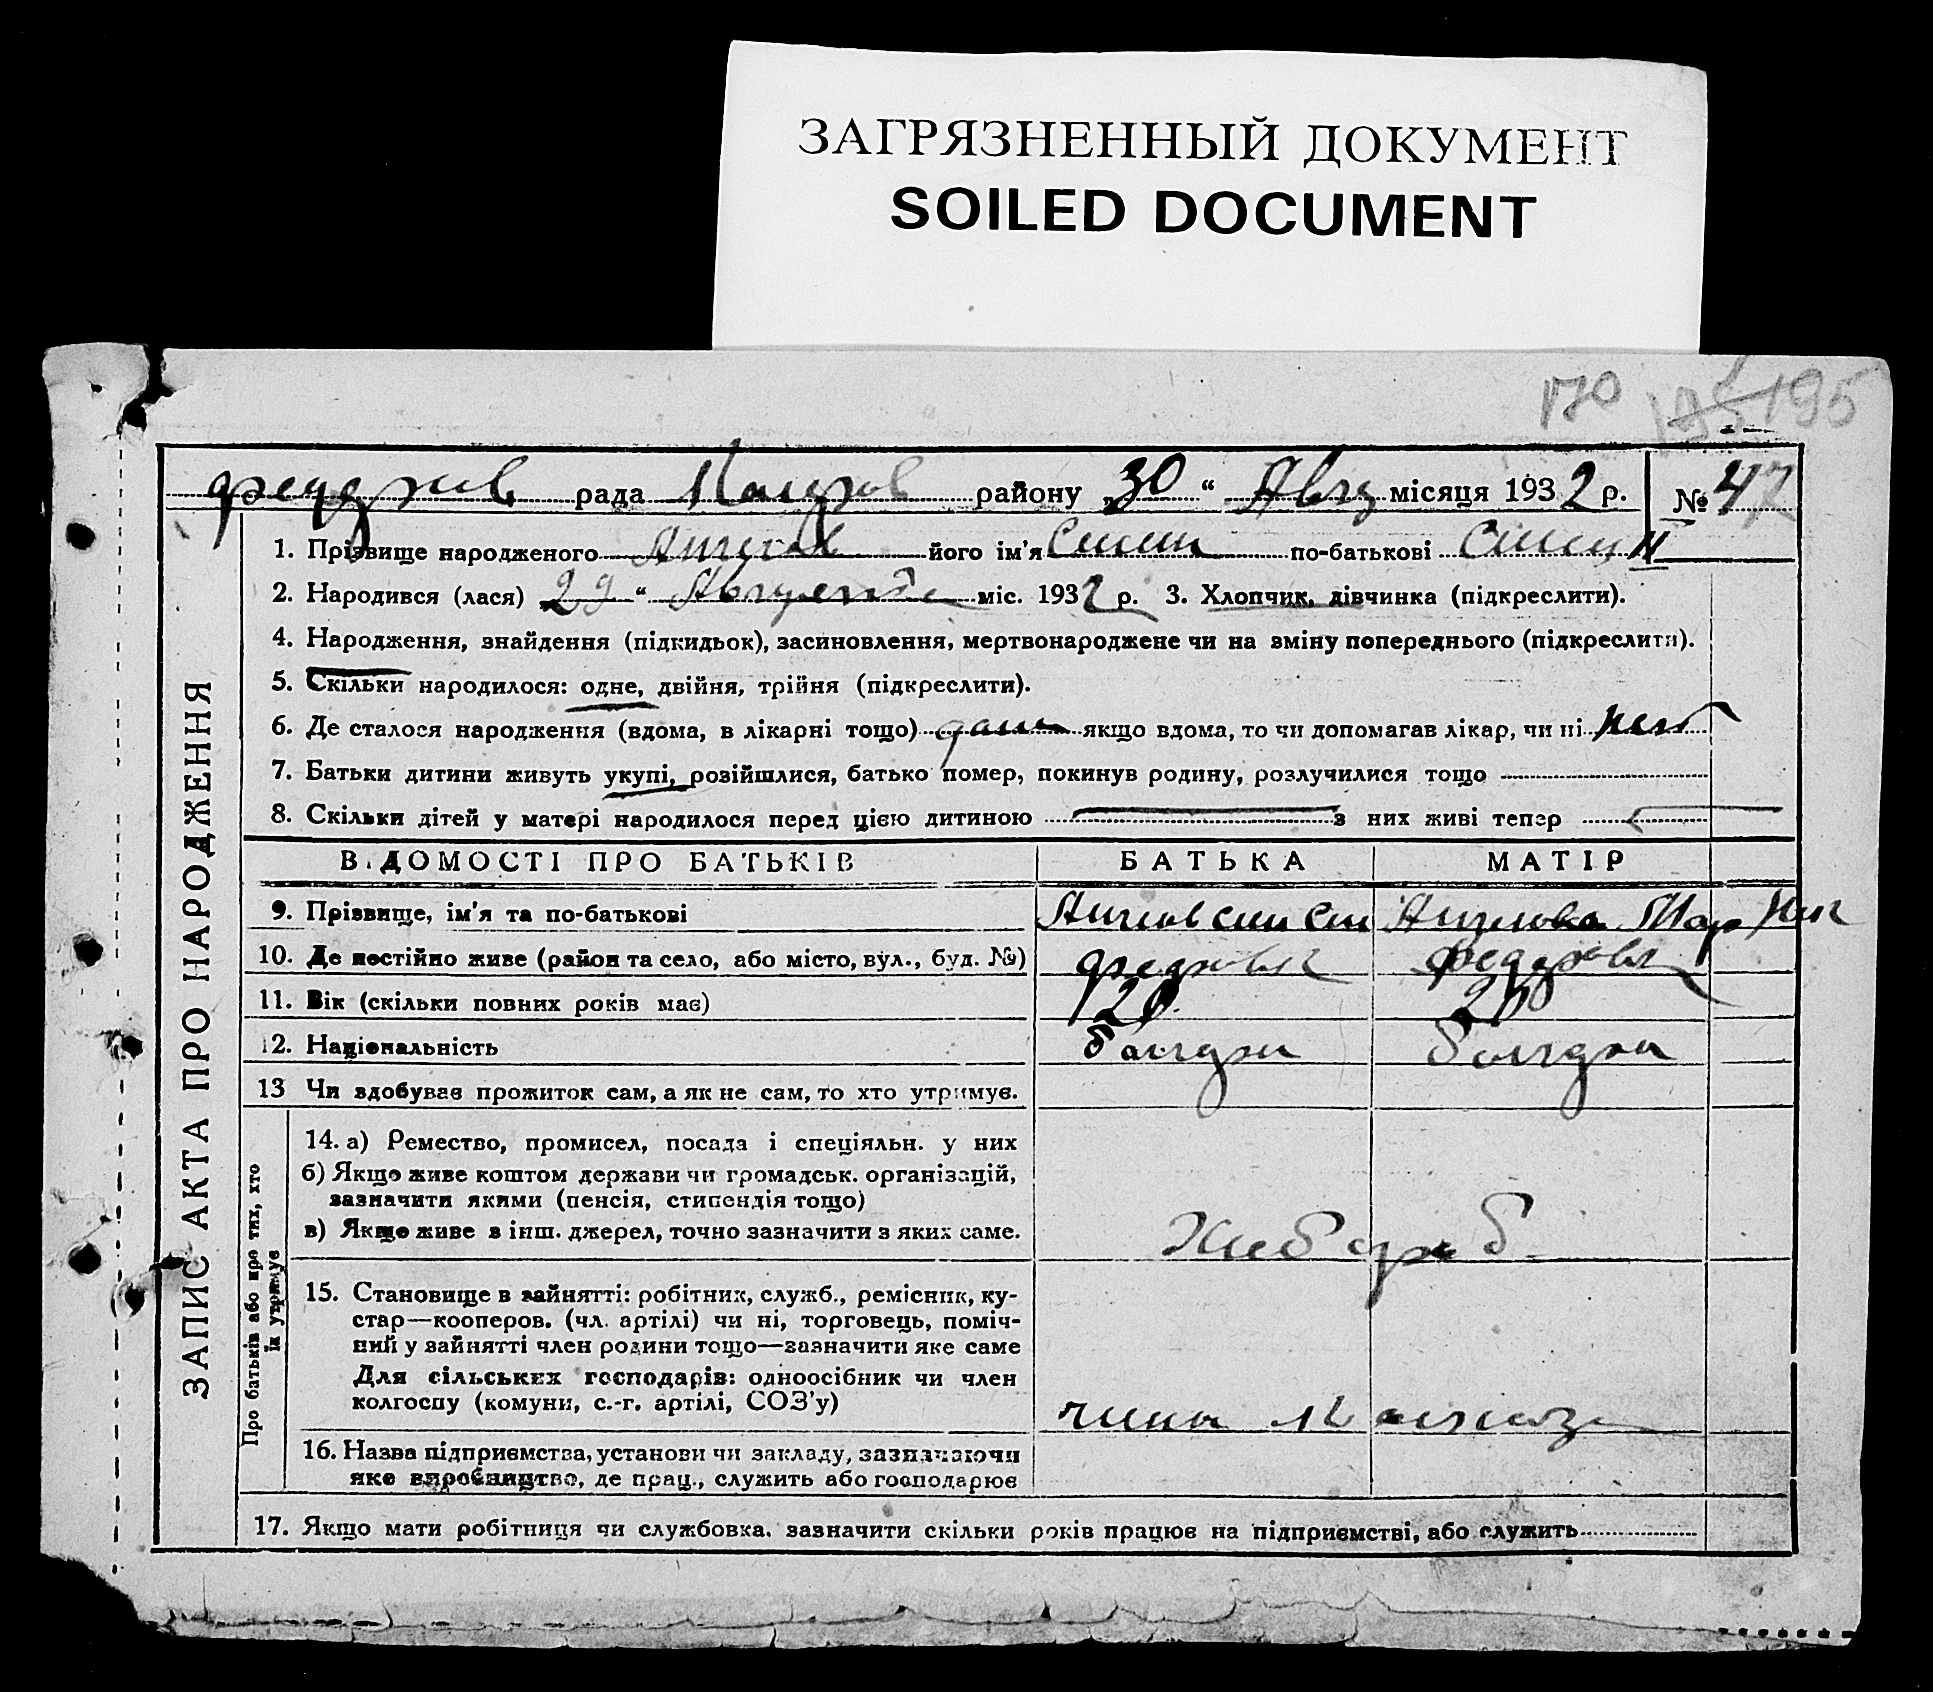 ЗАГРЯЗНЕННЫЙ ДОКУМЕНТ
SOILED DOCUMENT
170 195
рада района району „30“ Авг місяця 1932 р. № 47
ЗАПИС АКТА ПРО НАРОДЖЕННЯ
1. Прізвище народженого його ім'я по-батькові
2. Народився (лася) 29“ Августа міс. 1932 р. 3. Хлопчик, дівчинка (підкреслити).
4. Народження, знайдення (підкидьок), засиновлення, мертвонароджене чи на зміну попереднього (підкреслити).
5. Скільки народилося: одне, двійня, трійня (підкреслити).
6. Де сталося народження (вдома, в лікарні тощо) дома якщо вдома, то чи допомагав лікар, чи ні нет
7. Батьки дитини живуть укупі, розійшлися, батько помер, покинув родину, розлучилися тощо
8. Скільки дітей у матері народилося перед цією дитиною з них живі тепер
ВІДОМОСТІ ПРО БАТЬКІВ БАТЬКА МАТІР
9. Прізвище, ім'я та по-батькові
10. Де постійно живе (район та село, або місто, вул., буд. №)
11. Вік (скільки повних років має) 20 20
12. Національність болгари болгари
13 Чи здобуває прожиток сам, а як не сам, то хто утримує.
Про батьків або про тих, хто їх утримує
14. а) Ремество, промисел, посада і спеціяльн. у них
б) Якщо живе коштом держави чи громадськ. організацій,
зазначити якими (пенсія, стипендія тощо)
в) Якщо живе в інш. джерел, точно зазначити з яких саме. Хлебороб
15. Становище в зайнятті: робітник, служб., ремісник, ку-
стар—кооперов. (чл. артілі) чи ні, торговець, поміч-
ний у зайнятті член родини тощо—зазначити яке саме
Для сільських господарів: одноосібник чи член
колгоспу (комуни, с.-г. артілі, СОЗ'у) члены колхоза
16. Назва підприємства, установи чи закладу, зазначаючи
яке виробництво, де прац., служить або господарює
17. Якщо мати робітниця чи службовка, зазначити скільки років працює на підприємстві, або служить